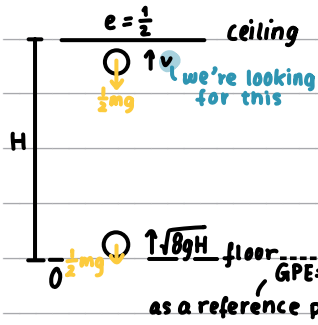 e = 1/2
ceiling
↑ v
we're looking for this
1/2 mg
H
↑ √8gH
floor
0
1/2 mg
GPE=
as a reference p